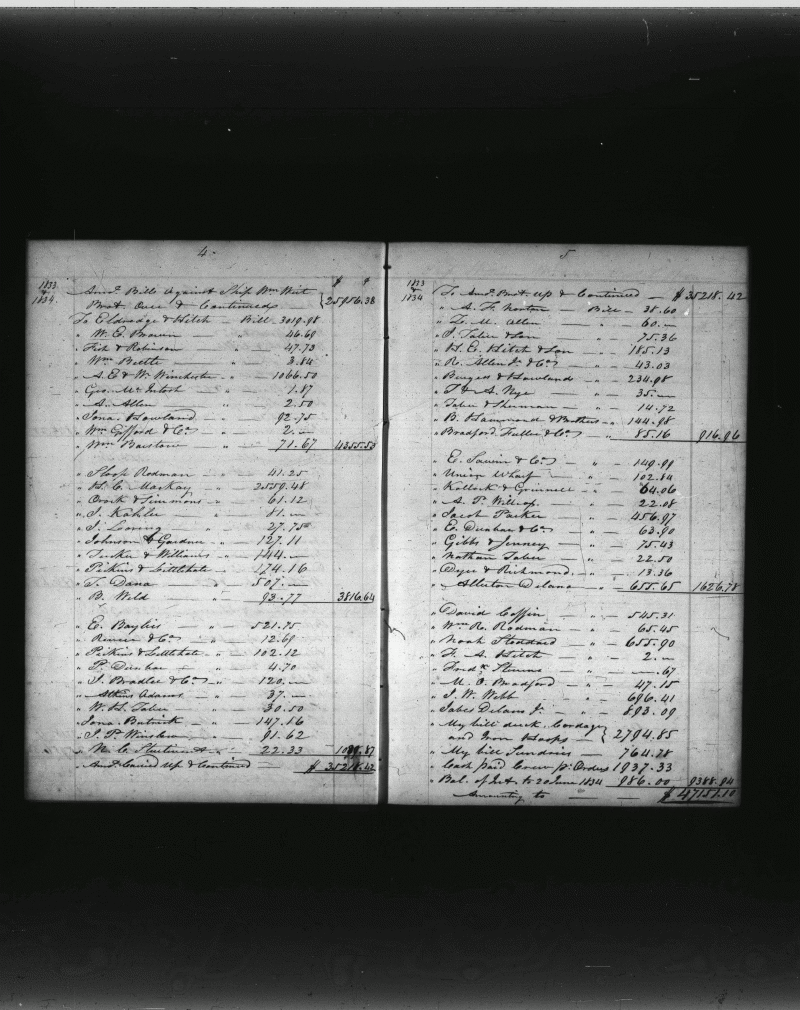 4
1833 & 1834
$ $
Amot. Bills Against Ship Wm Wirt
Brot Over & Continued 25956.38
To Eldredge & Hitch — Bill — 3019.98
" W. E. Brown — " — 46.69
" Fish & Robinson " — 47.73
" Wm Beetle — " — 3.84
" A. E & W. Winchester " — 1066.50
" Geo. McIntosh — " — 1.87
" A. Allen — " — 2.50
" Jona. Howland — " — 92.75
" Wm Gifford & Co — " — 2.—
" Wm Barstow — " — 71.67 4355.53
" Shop Rodman — " — 41.25
" H. C. Mackay — " — 2559.48
" Crook & Simmons — " — 61.12
" J. Kahler — " — 81.—
" J. Loring — " — 27.75
" Johnson & Gardner — " — 127.11
" Tucker & Williams — " — 144.—
" Pitkins & Littlehale — " — 174.16
" T. Dana — " — 507.—
" B. Weld — " — 93.77 3816.64
" E. Baylies — " — 521.75
" & Co — " — 12.69
" Pitkins & Littlehale — " — 102.12
" P. Dunbar — " — 4.70
" J. Bradlee & Co — " — 120.—
" Atkins Adams — " — 37.—
" W. H. Taber — " — 30.50
" Jona. Buttrick — " — 147.16
" J. P. Winslow — " — 91.62
" — " — 22.33 1089.87
" Amot. Carried Up & Continued — $ 35218.42
5
1833 & 1834
To Amot. Brot. up & Continued — $ 35218.42
" A. F. Norton — Bill — 38.60
" T. M. Allen — " — 60.—
" J. Taber & Son — " — 75.36
" H. E. Hitch & Son — " — 185.13
" R. Allen Jr. & Co — " — 43.03
" Burgess & Howlands — " — 234.98
" T & A. Nye — " — 35.—
" Taber & Sherman — " — 14.72
" B. Hammond & Brothers — " — 144.98
" Bradford, Fuller & Co — " — 85.16 916.96
" E. Sawin & Co — " — 149.99
" Union Wharf — " — 102.84
" Kollock & Grinnell — " — 64.06
" A. P. Willis — " — 22.08
" Jacob Parker — " — 456.97
" E. Dunbar & Co — " — 63.90
" Gibbs & Jenney — " — 75.43
" Nathan Taber — " — 22.50
" Dyer & Richmond — " — 13.36
" Allerton Delano — " — 655.65 1626.78
" David Coffin — " — 545.31
" Wm. R. Rodman — " — 65.45
" Noah Stoddard — " — 655.90
" F. A. Hitch — " — 2.—
" Fredk Stevens — " — —.67
" M. O. Bradford — " — 47.15
" J. W. Webb — " — 696.41
" Jabez Delano Jr. — " — 893.09
" My bill duck, Cordage
and Iron Hoops 2794.85
" My bill Sundries — 764.78
" Cash paid Crew pr. Orders 1937.33
" Bal. of Int. to 20 June 1834 986.00 9388.94
Amounting to — — $ 47151.10